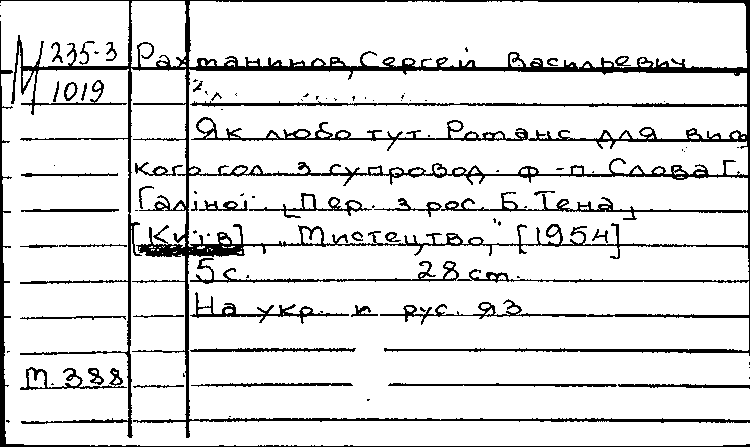 М 235-3 Рахманинов, Сергей Васильевич
1019
Як любо тут. Романс для висо
кого гол. з супровод. ф-п. Слова Г.
Галіної. [Пер. з рос. Б. Тена]
[Київ], "Мистецтво," [1954]
5 с. 28 см.
На укр. и рус. яз
М. 388